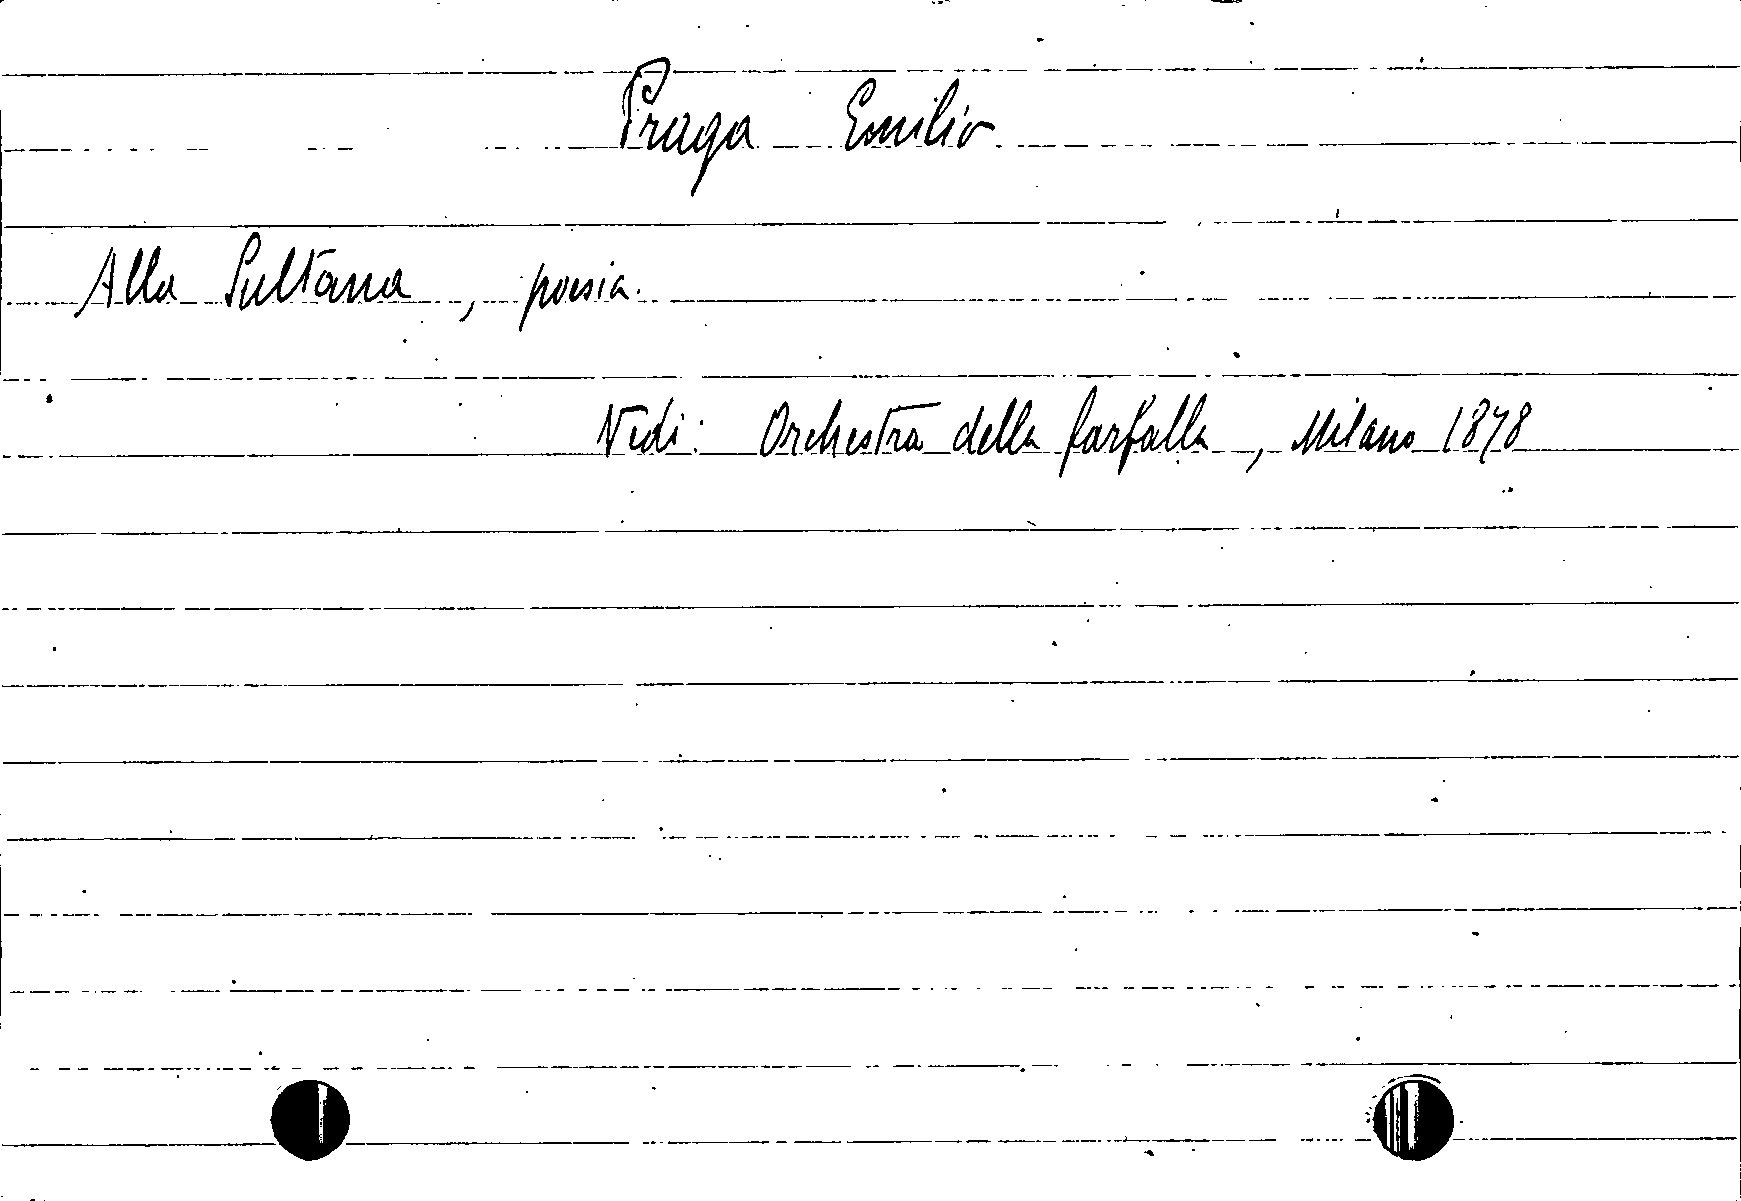 Praga Emilio
Alla Sultana, poesia.
Vedi: Orchestra della farfalla, Milano 1878